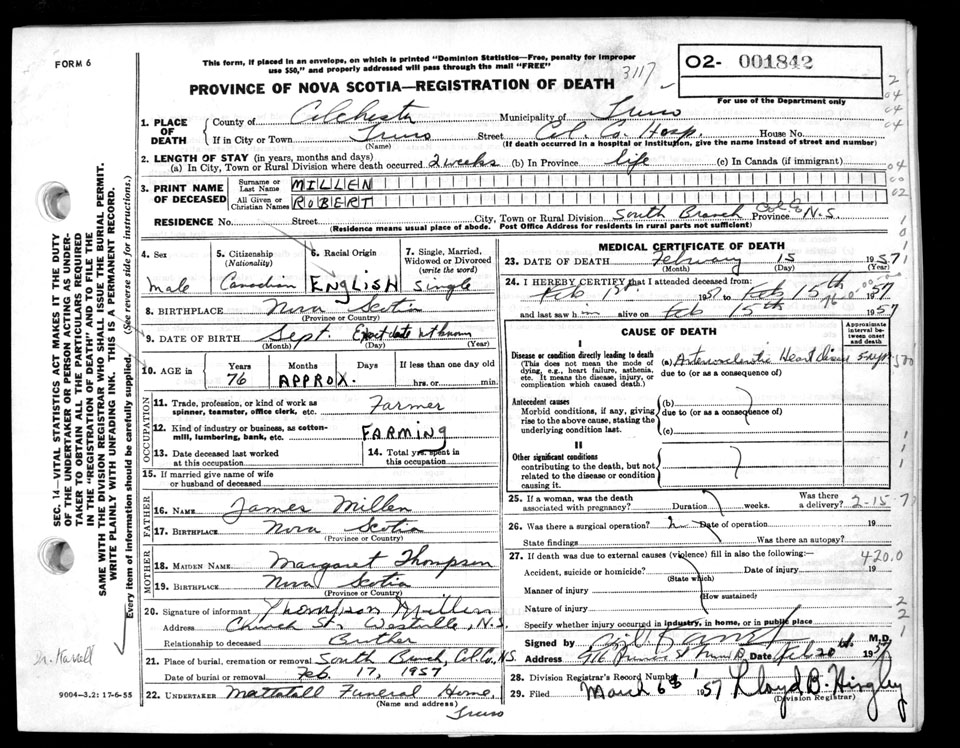 FORM 6
This form, if placed in an envelope, on which is printed "Dominion Statistics—Free, penalty for improper
use $50," and properly addressed will pass through the mail "FREE"
3117
O2- 001842
For use of the Department only
PROVINCE OF NOVA SCOTIA—REGISTRATION OF DEATH
1. PLACE OF DEATH
County of Colchester Municipality of Truro
If in City or Town Truro Street Col. Co. Hosp. House No.
(Name) (If death occurred in a hospital or institution, give the name instead of street and number)
2. LENGTH OF STAY (in years, months and days)
(a) In City, Town or Rural Division where death occurred 2 weeks (b) In Province life (c) In Canada (if immigrant)
3. PRINT NAME OF DECEASED
Surname or Last Name MILLEN
All Given or Christian Names ROBERT
RESIDENCE No. Street City, Town or Rural Division South Branch Col. Co Province N.S.
(Residence means usual place of abode. Post Office Address for residents in rural parts not sufficient)
4. Sex
Male
5. Citizenship
(Nationality)
Canadian
6. Racial Origin
ENGLISH
7. Single, Married,
Widowed or Divorced
(write the word)
Single
8. BIRTHPLACE Nova Scotia
(Province or Country)
9. DATE OF BIRTH Sept. Exact date not known
(Month) (Day) (Year)
10. AGE in Years Months Days If less than one day old
76 APPROX. hrs. or min.
OCCUPATION
11. Trade, profession, or kind of work as
spinner, teamster, office clerk, etc. Farmer
12. Kind of industry or business, as cotton-
mill, lumbering, bank, etc. FARMING
13. Date deceased last worked
at this occupation
14. Total yrs. spent in
this occupation
15. If married give name of wife
or husband of deceased
FATHER
16. NAME James Millen
17. BIRTHPLACE Nova Scotia
(Province or Country)
MOTHER
18. MAIDEN NAME Margaret Thompson
19. BIRTHPLACE Nova Scotia
(Province or Country)
20. Signature of informant Thompson Millen
Address Church St., Westville, N.S.
Relationship to deceased Brother
21. Place of burial, cremation or removal South Branch, Col. Co, N.S.
Date of burial or removal Feb. 17, 1957
22. UNDERTAKER Mattatall Funeral Home,
(Name and address)
Truro
MEDICAL CERTIFICATE OF DEATH
23. DATE OF DEATH February 15 1957
(Month) (Day) (Year)
24. I HEREBY CERTIFY that I attended deceased from:
Feb 1957 to Feb 15th 1957
and last saw him alive on Feb 15th 1957
CAUSE OF DEATH
Approximate
interval be-
tween onset
and death
I
Disease or condition directly leading to death
(This does not mean the mode of
dying, e.g., heart failure, asthenia,
etc. It means the disease, injury, or
complication which caused death.)
(a) Arteriosclerotic Heart Disease 5 yrs
due to (or as a consequence of)
Antecedent causes
Morbid conditions, if any, giving
rise to the above cause, stating the
underlying condition last.
(b)
due to (or as a consequence of)
(c)
II
Other significant conditions
contributing to the death, but not
related to the disease or condition
causing it.
25. If a woman, was the death
associated with pregnancy? Duration weeks. Was there
a delivery?
2-15-7
26. Was there a surgical operation? Date of operation 19
State findings Was there an autopsy?
27. If death was due to external causes (violence) fill in also the following:—
420.0
Accident, suicide or homicide? Date of injury 19
(State which)
Manner of injury
(How sustained)
Nature of injury
Specify whether injury occurred in industry, in home, or in public place
Signed by M.D.
Address Date Feb 20th 1957
28. Division Registrar's Record Number
29. Filed March 6 1957 Lloyd B. Hingley
(Division Registrar)
SEC. 14—VITAL STATISTICS ACT MAKES IT THE DUTY
OF THE UNDERTAKER OR PERSON ACTING AS UNDER-
TAKER TO OBTAIN ALL THE PARTICULARS REQUIRED
IN THE "REGISTRATION OF DEATH" AND TO FILE THE
SAME WITH THE DIVISION REGISTRAR WHO SHALL ISSUE THE BURIAL PERMIT.
WRITE PLAINLY WITH UNFADING INK. THIS IS A PERMANENT RECORD.
Every item of information should be carefully supplied. (See reverse side for instructions.)
9004-3.2: 17-6-55